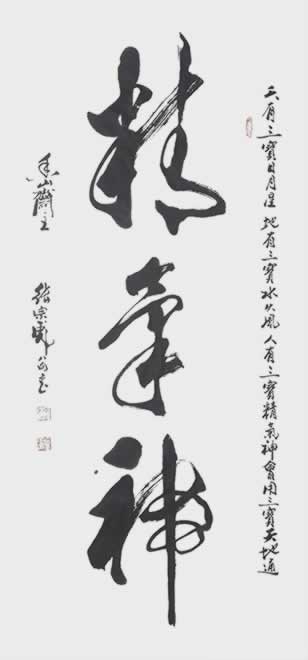 天有三寶日月星 地有三寶水火風 人有三寶精氣神 會用三寶天地通
精氣神
山齋主